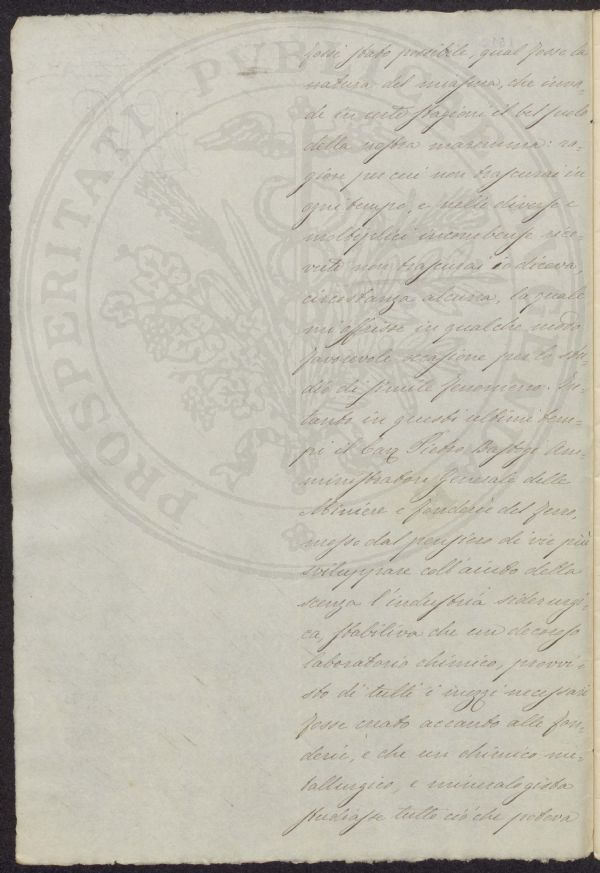 fossi stato possibile, qual fosse la
natura del miasma, che inva-
de in certe stagioni il bel suolo
della nostra maremma: ra-
gione per cui non trascurai in
ogni tempo, e nelle diverse e
molteplici incombenze rice-
vute non trascurai io diceva,
circostanza alcuna, la quale
mi offrisse in qualche modo
favorevole occasione per lo stu-
dio di simile fenomeno. In-
tanto in questi ultimi tem-
pi il Cav. Pietro Bastogi Am-
ministratore Generale delle
Miniere e fonderie del ferro,
mosso dal pensiero di vie più
sviluppare coll'aiuto della
scenza l'industria siderurgi-
ca, stabiliva che un decoroso
laboratorio chimico, provvi-
sto di tutti i mezzi necessari
fosse creato accanto alle fon-
derie, e che un chimico me-
tallurgico, e mineralogista
studiasse tutto ciò che poteva
PROSPERITATI PUBLICAE